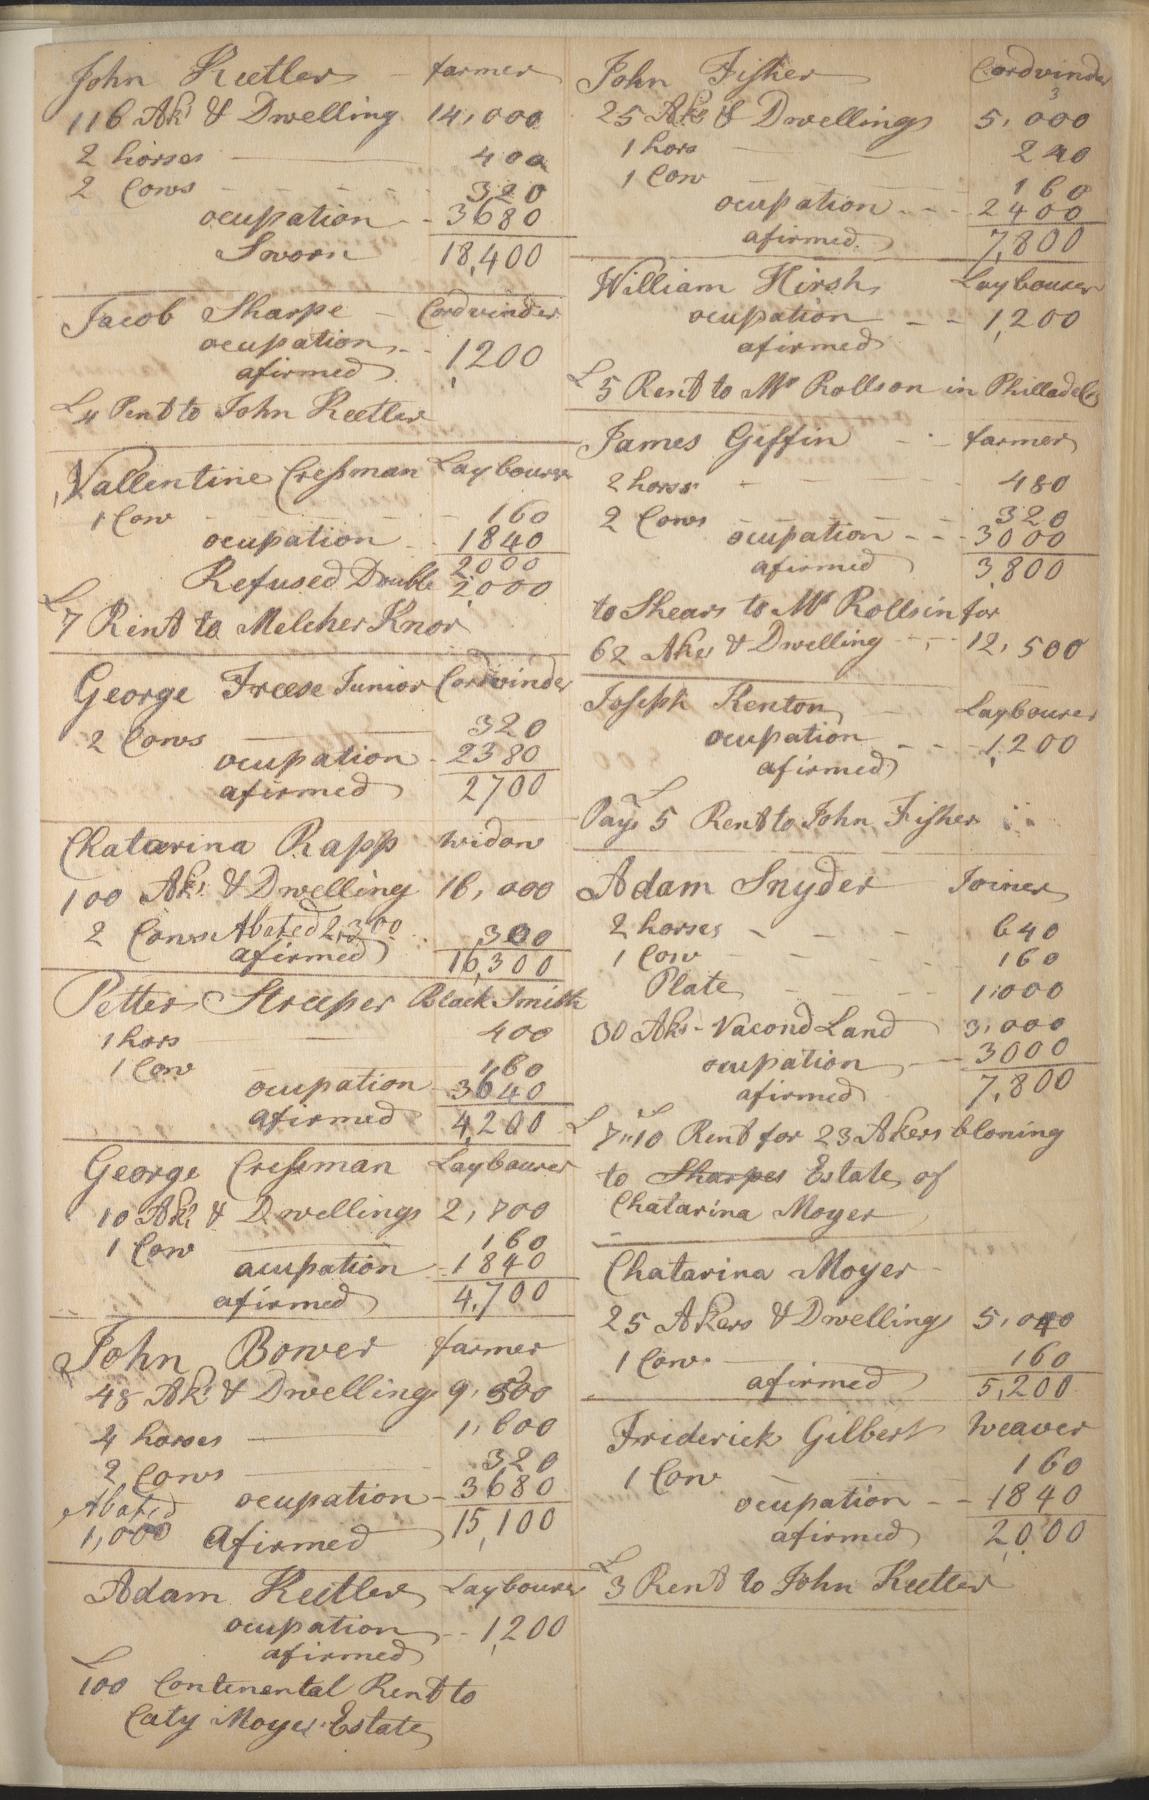 John Keetler - farmer
116 Aks & Dwelling 14,000
2 horses 400
2 Cows 320
ocupation - - 3680
Sworn 18,400
Jacob Sharpe - Cordvinder
ocupation - - 1,200
afirmed
£4 Rent to John Keetler
Vallentine Cressman Laybourer
1 Cow 160
ocupation 1840
2000
Refused Double 2,000
£7 Rent to Melcher Knor
George Freese Junior Cordvinder
2 Cows 320
ocupation - 2380
afirmed 2700
Chatarina Rapp widow
100 Aks & Dwelling 16,000
2 Cows Abated 2,300 300
afirmed 16,300
Petter Streeper Black Smith
1 hors 400
1 Cow 160
ocupation 3640
afirmed 4,200
George Cressman Laybourer
10 Aks & Dwellings 2,700
1 Cow 160
acupation - 1840
afirmed 4,700
John Bower farmer
48 Aks & Dwelling 9,500
4 horses 1,600
2 Cows 320
Abated ocupation - 3680
1,000 Afirmed 15,100
Adam Keetler Laybourer
ocupation - - 1,200
afirmed
£100 Contenental Rent to
Caty Moyer Estate
John Fisher Cordvinder
3
25 Aks & Dwellings 5,000
1 hors 240
1 Cow 160
ocupation - - - 2400
afirmed 7,800
William Hirsh Laybourer
ocupation - - 1,200
afirmed
£5 Rent to Mr Rollson in Philladel
James Giffin - - farmer
2 horss 480
2 Cows 320
ocupation - - - 3000
afirmed 3,800
to Shears to Mr Rollsin for
62 Akes & Dwelling - - - 12,500
Joseph Kenton Laybourer
ocupation - - - 1,200
afirmed
Pays £5 Rent to John Fisher
Adam Snyder Joiner
2 horses - - - 640
1 Cow - - - 160
Plate - - - 1,000
30 Aks - Vacond Land 3,000
ocupation - - 3000
afirmed 7,800
£7"10 Rent for 23 Akers bloning
to Sharpes Estate of
Chatarina Moyer
Chatarina Moyer
25 Akers & Dwelling 5,040
1 Cow 160
afirmed 5,200
Friderick Gilbert Weaver
1 Cow 160
ocupation - - 1840
afirmed 2,000
£3 Rent to John Keetler